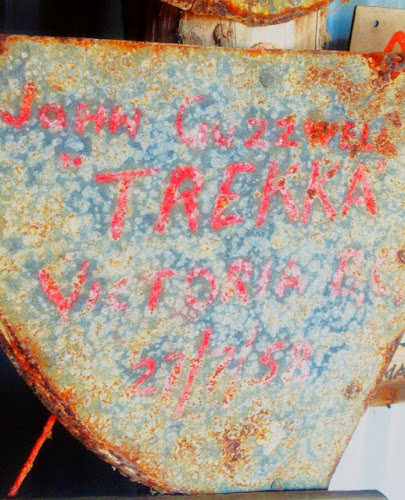 JOHN GUZZWELL
"TREKKA"
VICTORIA BC
27/7/58